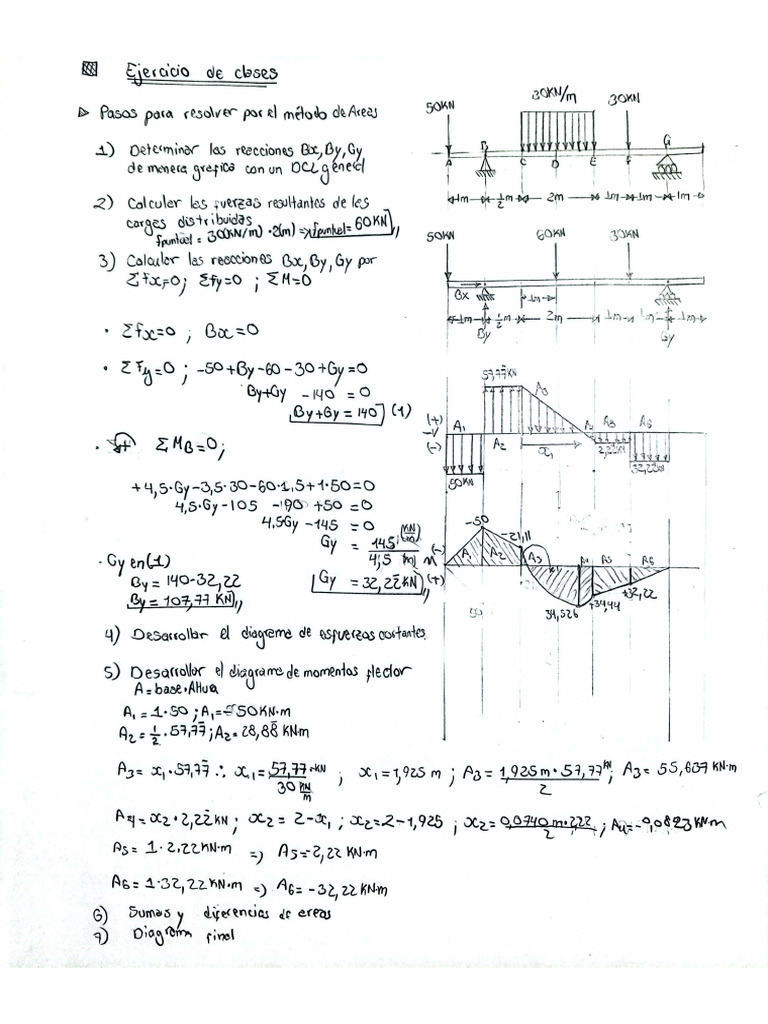 Ejercicio de clases
▷ Pasos para resolver por el método de Areas
1) Determinar las reacciones Bx, By, Gy
de manera grafica con un DCL general
2) Calcular las fuerzas resultantes de las
cargas distribuidas
fpuntual = 30(KN/m) · 2(m) => fpuntual = 60 KN
3) Calcular las reacciones Bx, By, Gy por
Σfx=0; Σfy=0 ; ΣM=0
• Σfx=0 ; Bx=0
• Σfy=0 ; -50+By-60-30+Gy=0
By+Gy -140 = 0
By+Gy = 140 (1)
• + ΣMB=0;
+4,5·Gy-3,5·30-60·1,5+1·50=0
4,5·Gy-105 -90 +50 = 0
4,5Gy-145 = 0
Gy = 145 / 4,5
Gy = 32,22 KN
· Gy en (1)
By = 140-32,22
By = 107,77 KN
4) Desarrollar el diagrama de esfuerzos cortantes
5) Desarrollar el diagrama de momentos flector
A = base·Altura
A1 = 1·50 ; A1=-50KN·m
A2 = 1/2 · 57,77 ; A2=28,88 KN·m
A3 = x1·57,77 ∴ x1 = 57,77 KN / 30 KN/m ; x1=1,925 m ; A3 = 1,925 m · 57,77 KN / 2 ; A3 = 55,607 KN·m
A4 = x2·2,22 KN ; x2 = 2-x1 ; x2=2-1,925 ; x2=0,0740 m·2,22 / 2 ; A4=-0,0823 KN·m
A5 = 1·2,22 KN·m => A5=-2,22 KN·m
A6 = 1·32,22 KN·m => A6 = -32,22 KN·m
6) Sumas y diferencias de areas
7) Diagrama final
50KN 30KN/m 30KN
A B C D E F G
1m 1/2 m 2m 1m 1m 1m
50KN 60KN 30KN
Bx 1m
1m 1/2 m 2m 1m 1m 1m
By Gy
57,77 KN
(+) A1 A3 A5 A6
-V
(-) A2 x1 2,22KN
50KN 32,22KN
-50
-21,11
(-) A1 A2 A3 A5 A6
M
(+) +32,22
+34,44
34,526